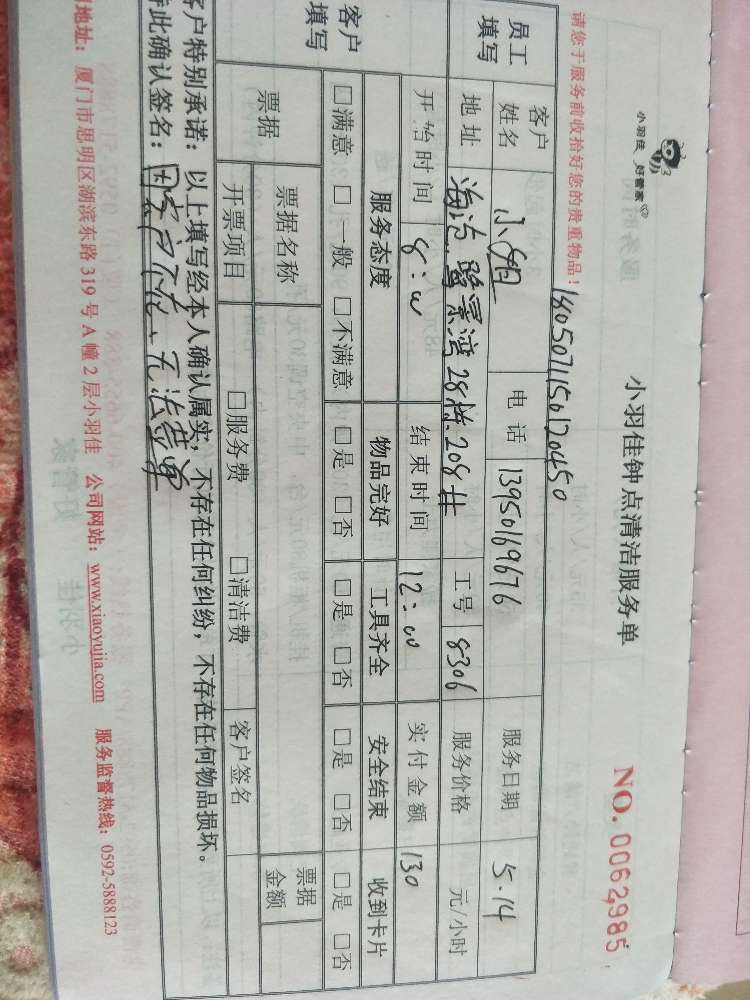 小羽佳 好管家
小羽佳钟点清洁服务单
NO. 0062985
请您于服务前收拾好您的贵重物品!
1805071150120450
员工填写
客户姓名 小姐 电话 13950169676 服务日期 5.14
地址 海沧 景湾28栋208# 工号 8306 服务价格 元/小时
开始时间 8:00 结束时间 12:00 实付金额 130
客户填写
服务态度 物品完好 工具齐全 安全结束 收到卡片
□满意 □一般 □不满意 □是 □否 □是 □否 □是 □否 □是 □否
票据 票据名称 票据金额
开票项目 □服务费 □清洁费 客户签名
客户特别承诺:以上填写经本人确认属实,不存在任何纠纷,不存在任何物品损坏。
特此确认签名:因客户不在、无法签单
地址:厦门市思明区湖滨东路 319 号 A 幢 2 层小羽佳 公司网站:www.xiaoyujia.com 服务监督热线:0592-5888123